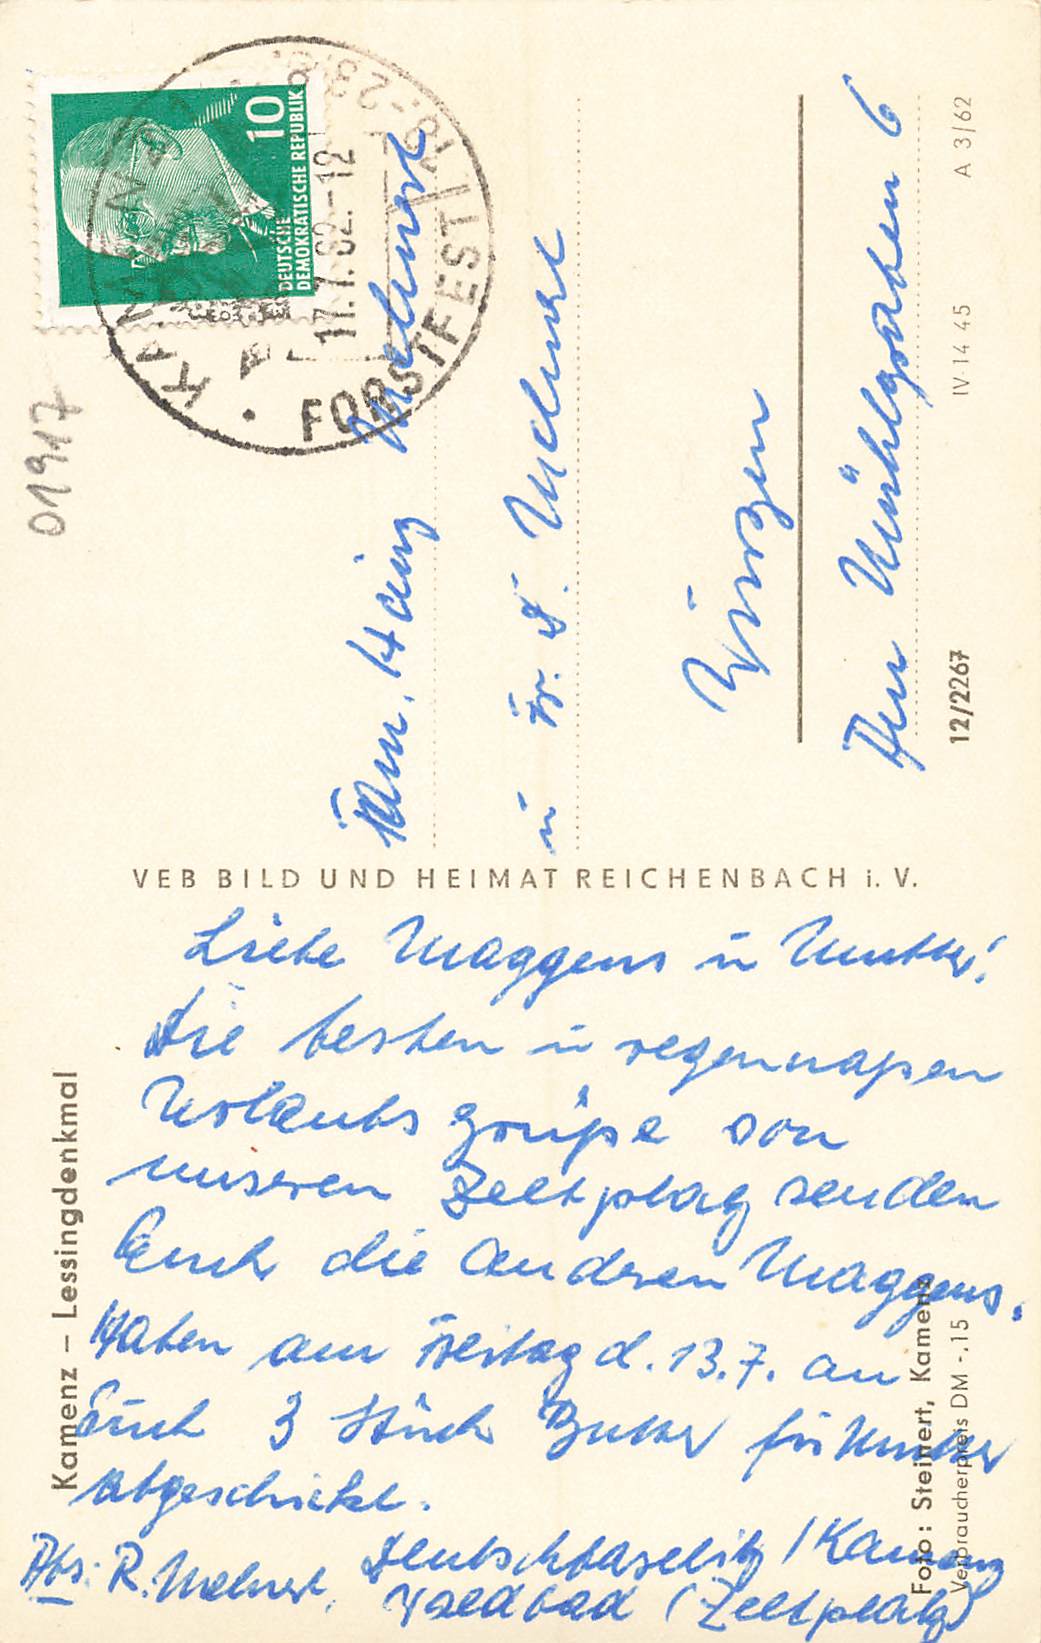 Kamenz – Lessingdenkmal
Liebe Maggens u Mutter!
Die besten u regennaßen
Urlaubs grüße von
unseren Zeltplatz senden
Euch die anderen Maggens.
Haben am Freitag d. 13.7. an
Euch 3 Stück Butter für Mutter
abgeschickt.
Abs: R. Mehnert, Deutschbaselitz / Kamenz
Waldbad (Zeltplatz)
Foto: Steinert, Kamenz
Verbraucherpreis DM -,15
VEB BILD UND HEIMAT REICHENBACH i. V.
01917
10
DEUTSCHE
DEMOKRATISCHE REPUBLIK
KAMENZ
17.7.62.-12
FORSTFEST
Fam. Heinz Mehnert
u Fr. L. Mehnert
Wurzen
Am Mühlgraben 6
12/2267
IV-14-45
A 3/62